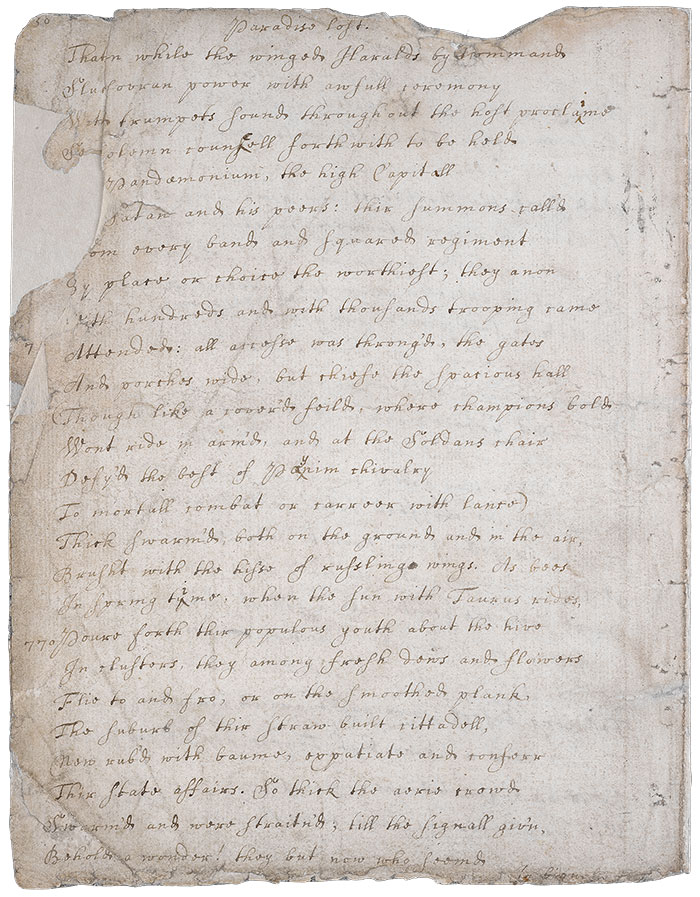 Paradise lost.
Mean while the winged Haralds by command
Of sovran power with awfull ceremony
With trumpets sound throughout the host proclaime
solemn counsell forthwith to be held
Pandæmonium, the high Capitall
Satan and his peers: thir summons call'd
om every band and squared regiment
By place or choice the worthiest; they anon
ith hundreds and with thousands trooping came
7 Attended: all accesse was throng'd, the gates
And porches wide, but chiefe the spacious hall
(Though like a cover'd feild, where champions bold
Wont ride in arm'd, and at the Soldans chair
Defy'd the best of Panim chivalry
To mortall combat or carreer with lance)
Thick swarm'd, both on the ground and in the air,
Brusht with the hisse of russling wings. As bees
In spring time, when the sun with Taurus rides,
770 Poure forth thir populous youth about the hive
In clusters; they among fresh dews and flowers
Flie to and fro, or on the smoothed plank,
The suburb of thir straw built cittadell,
New rub'd with baume, expatiate and conferr
Thir state affairs. So thick the aerie crowd
Swarm'd and were strait'n'd; till the signall giv'n,
Behold a wonder! they but now who seemd